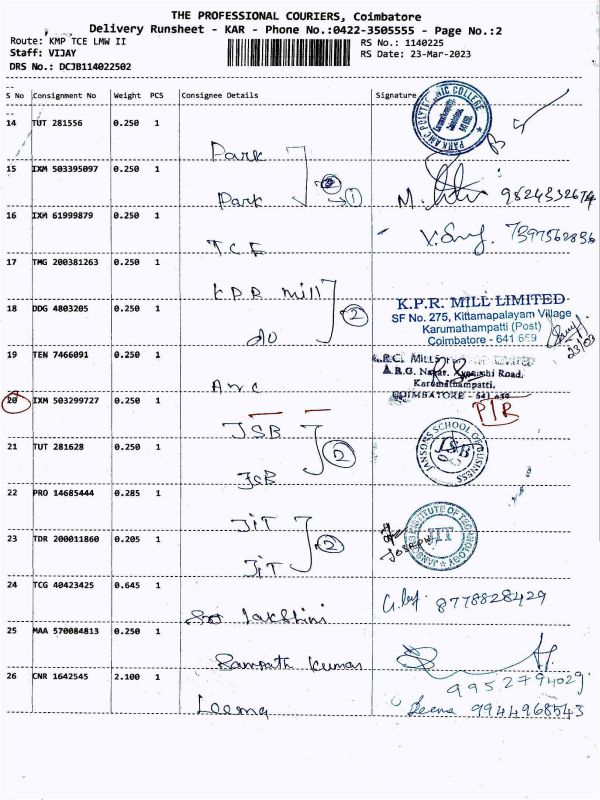 THE PROFESSIONAL COURIERS, Coimbatore
Delivery Runsheet - KAR - Phone No.:0422-3505555 - Page No.:2
Route: KMP TCE LMW II
RS No.: 1140225
Staff: VIJAY
RS Date: 23-Mar-2023
DRS No.: DCJB114022502
S No Consignment No Weight PCS Consignee Details Signature
14 TUT 281556 0.250 1
Park
PARK AMC POLYTECHNIC COLLEGE
15 IXM 503395097 0.250 1
Park
M. 9824332674
16 IXM 61999879 0.250 1
TCE
7397562836
17 TMG 200381263 0.250 1
KPR Mill
2
K.P.R. MILL LIMITED
SF No. 275, Kittamapalayam Village
Karumathampatti (Post)
Coimbatore - 641 659
18 DDG 4803205 0.250 1
do
23/03
19 TEN 7466091 0.250 1
AMC
MILLS LIMITED
A.R.G. Nagar, Road,
Karumathampatti,
COIMBATORE - 641 659
20 IXM 503299727 0.250 1
JSB
2
P/R
21 TUT 281628 0.250 1
JSB
JANSONS SCHOOL OF BUSINESS
JSB
22 PRO 14685444 0.285 1
JIT
2
23 TDR 200011860 0.205 1
JIT
JOSEPH
INSTITUTE OF TECHNOLOGY
JIT
24 TCG 40423425 0.645 1
Sri Lakshini
8778828429
25 MAA 570084813 0.250 1
Sampath Kumar
9952794029
26 CNR 1642545 2.100 1
Leema
Leema 9944968543